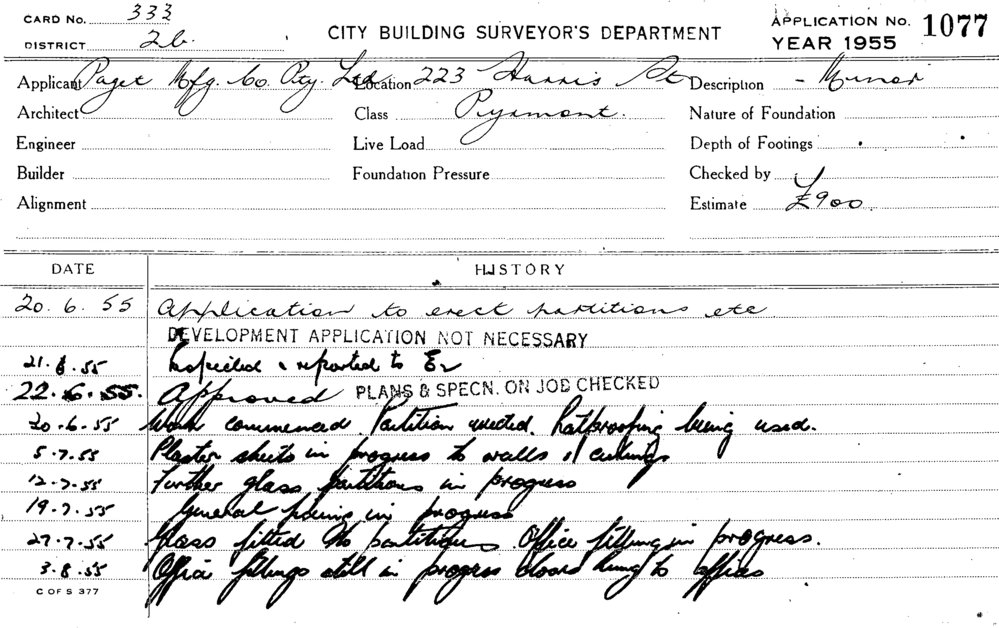 CARD No. 333
DISTRICT 2b.
CITY BUILDING SURVEYOR'S DEPARTMENT
APPLICATION No. 1077
YEAR 1955
Applicant Paget Mfg. Co. Pty. Ltd. Location 223 Harris St Description - Minor
Architect Class Pyrmont. Nature of Foundation
Engineer Live Load Depth of Footings
Builder Foundation Pressure Checked by
Alignment Estimate £900.
DATE HISTORY
20.6.55 Application to erect partitions etc
DEVELOPMENT APPLICATION NOT NECESSARY
21.6.55 Inspected & reported to
22.6.55. Approved PLANS & SPECN. ON JOB CHECKED
.6.55 Work commenced. Partition erected. Ratproofing being used.
5.7.55 Plaster sheets in progress to walls & ceilings
12.7.55 Further glass partitions in progress
19.7.55 General in progress
27.7.55 Glass fitted to partitions. Office fittings in progress.
3.8.55 Office fittings still in progress doors hung to offices
C OF S 377